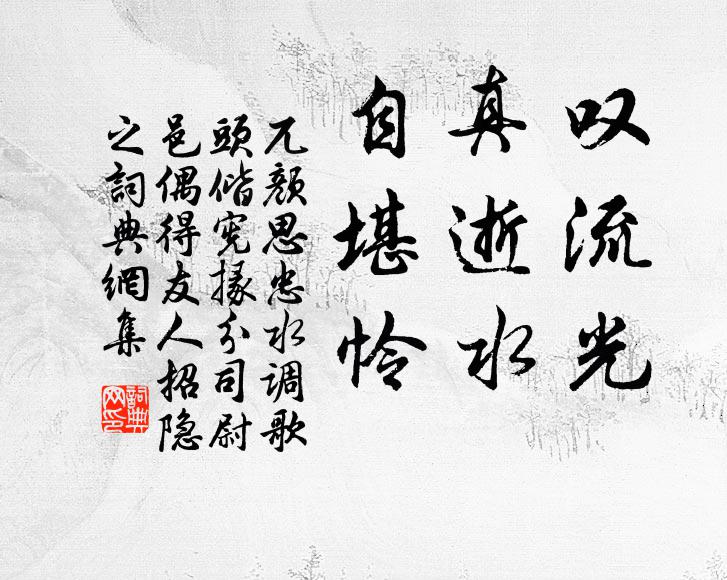 叹流光
真逝水
自堪怜
兀颜思忠水调歌
頭偕宪掾分司尉
邑偶得友人招隐
之詞典網集
詞典網印